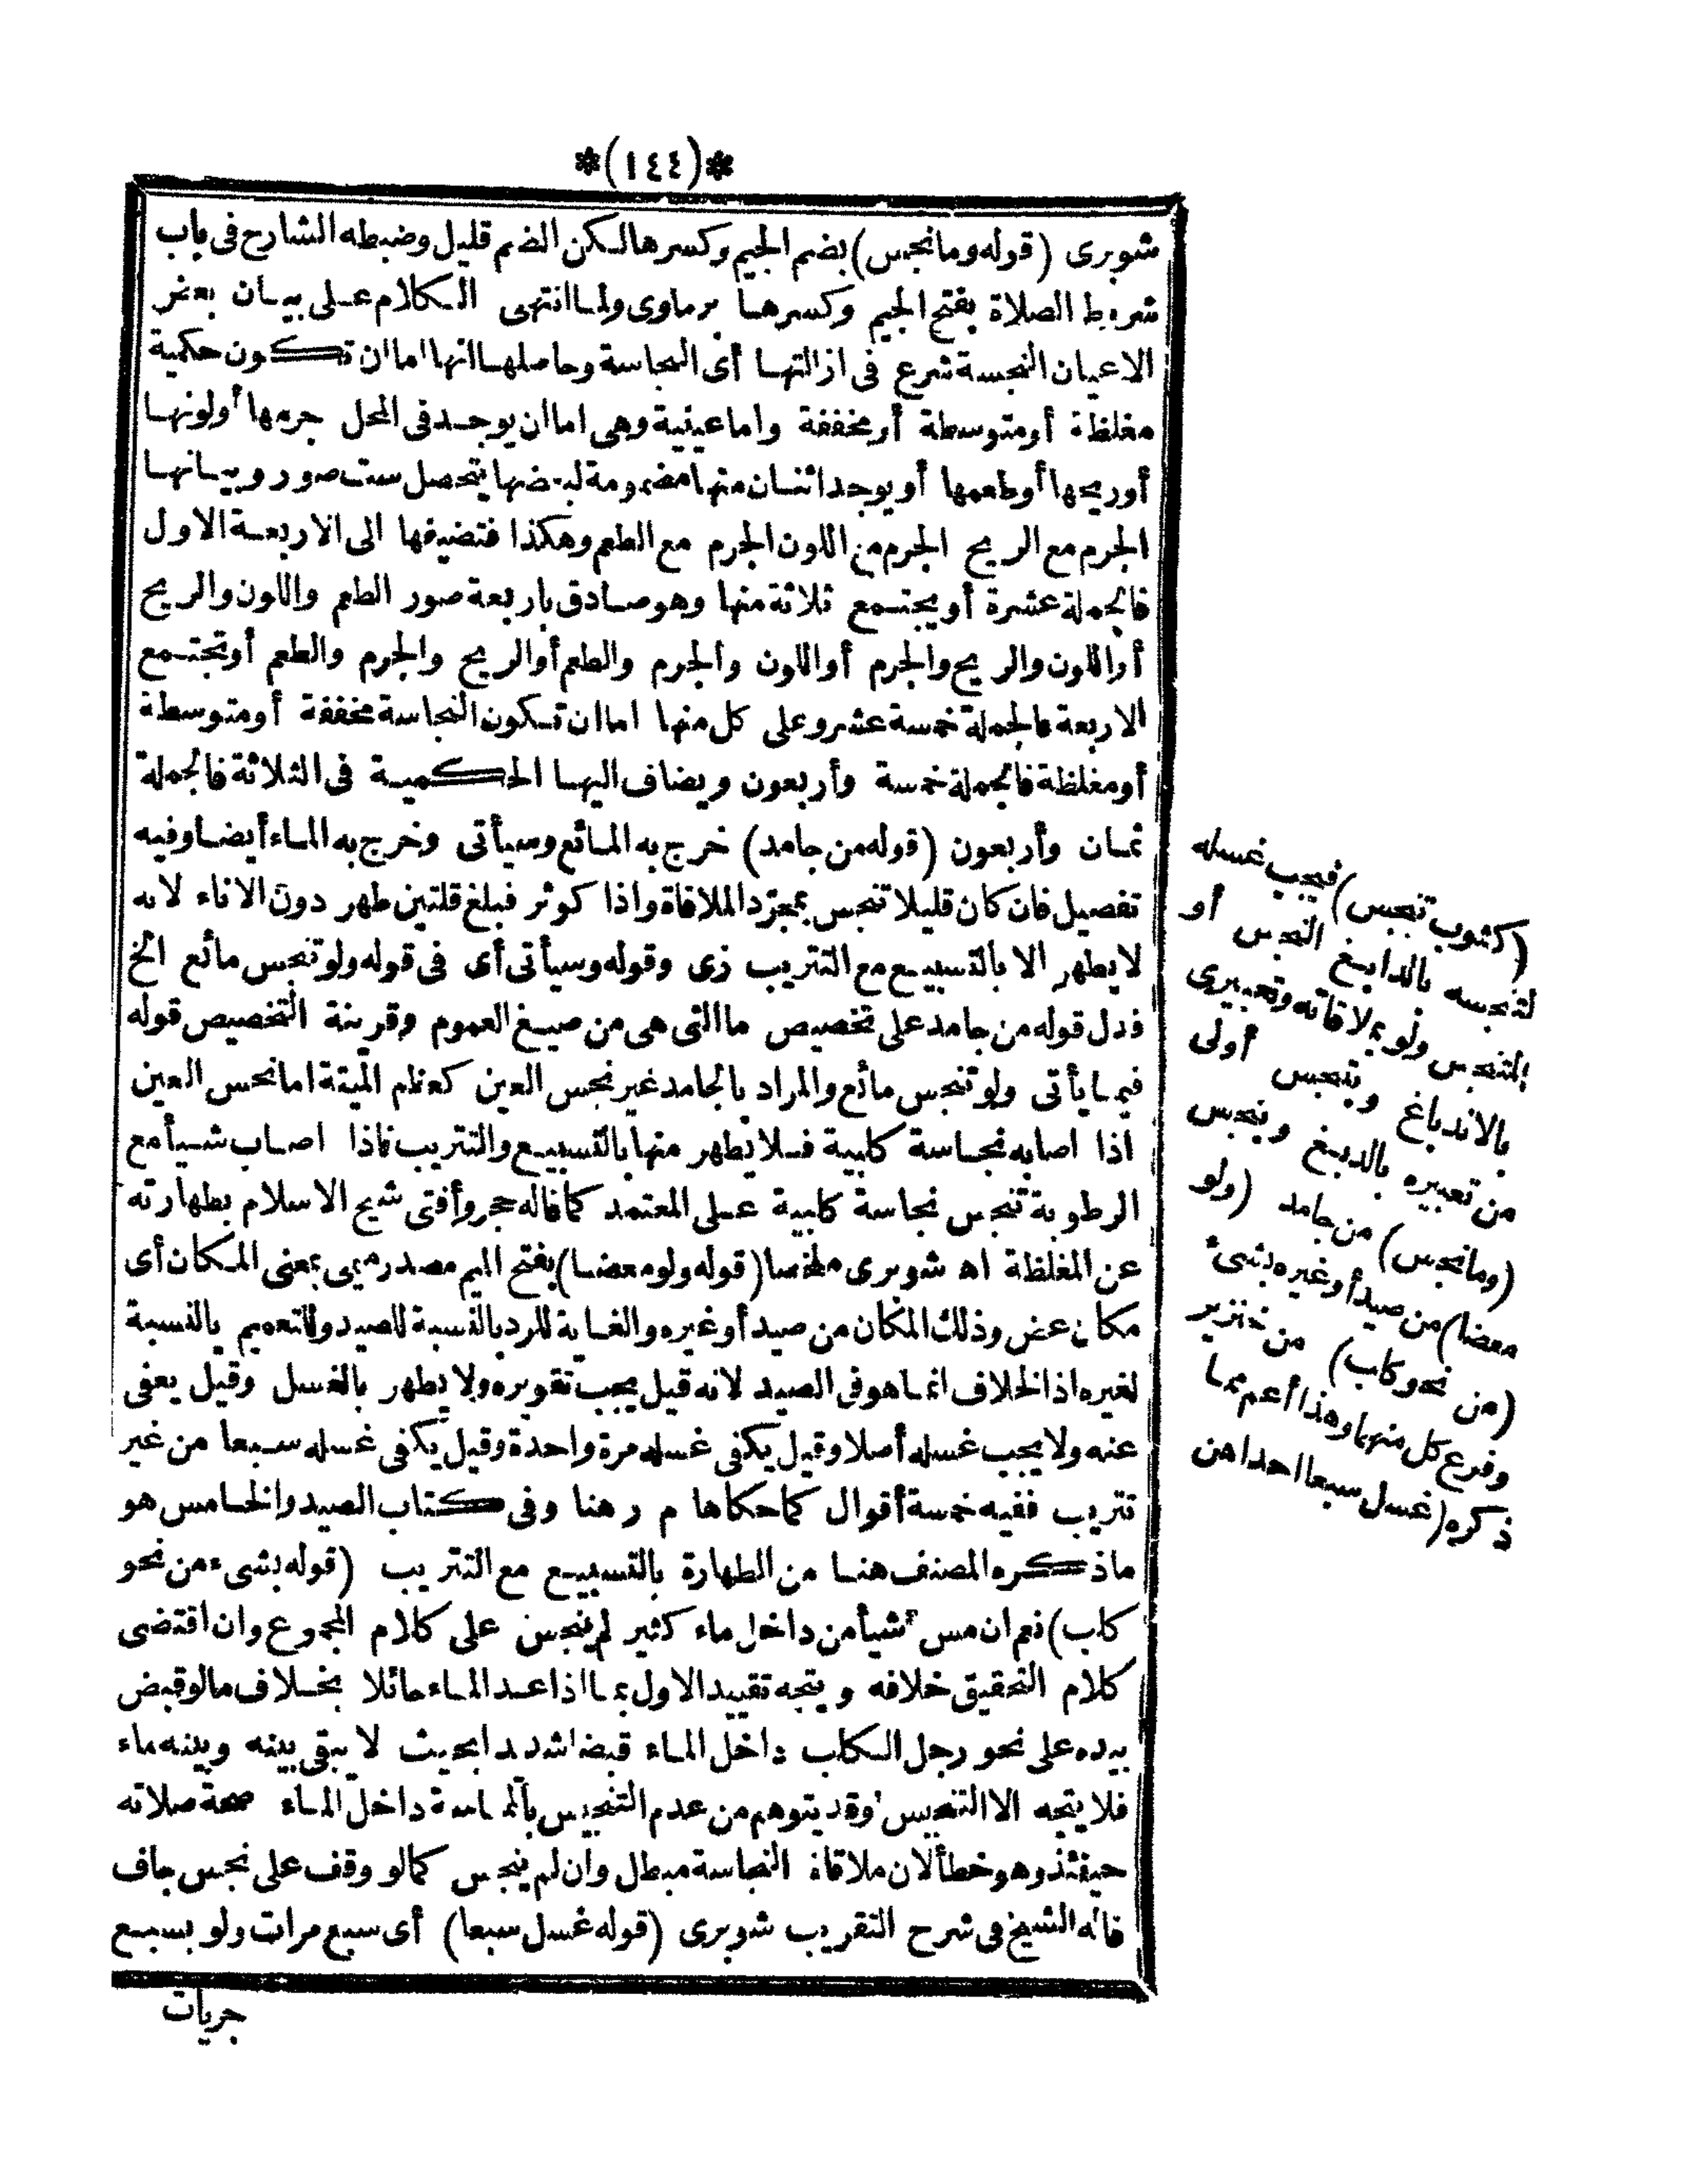 *(١٤٤)*
شوبرى (قوله وما نجس) بضم الجيم وكسرها لكن الضم قليل وضبطه الشارح فى باب
شروط الصلاة بفتح الجيم وكسرها برماوى ولما انتهى الكلام على بيان بعض
الاعيان النجسة شرع فى ازالتها أى النجاسة وحاصلها انها اما ان تكون حكمية
مغلظة أو متوسطة أو مخففة واما عينية وهى اما ان يوجد فى المحل جرمها أو لونها
أو ريحها أو طعمها أو يوجد اثنان منها مضمومة لبعضها يتحصل ست صور وبيانها
الجرم مع الريح الجرم مع اللون الجرم مع الطعم وهكذا فتضيفها الى الاربعة الاول
فالجملة عشرة أو يجتمع ثلاثة منها وهو صادق باربعة صور الطعم واللون والريح
أو اللون والريح والجرم أو اللون والجرم والطعم أو الريح والجرم والطعم أو تجتمع
الاربعة فالجملة خمسة عشر وعلى كل منها اما ان تكون النجاسة مخففة أو متوسطة
أو مغلظة فالجملة خمسة وأربعون ويضاف اليها الحكمية فى الثلاثة فالجملة
ثمان وأربعون (قوله من جامد) خرج به المائع وسيأتى وخرج به الماء أيضا وفيه
تفصيل فان كان قليلا تنجس بمجرّد الملاقاة واذا كوثر فبلغ قلتين طهر دون الاناء لانه
لا يطهر الا بالتسبيع مع التتريب زى وقوله وسيأتى أى فى قوله ولو تنجس مائع الخ
فدل قوله من جامد على تخصيص ما التى هى من صيغ العموم وقرينة التخصيص قوله
فيما يأتى ولو تنجس مائع والمراد بالجامد غير نجس العين كعظم الميتة اما نجس العين
اذا اصابه نجاسة كلبية فلا يطهر منها بالتسبيع والتتريب فاذا اصاب شيأ مع
الرطوبة تنجس نجاسة كلبية على المعتمد كما قاله حجر وأفتى شيخ الاسلام بطهارته
عن المغلظة اه شوبرى ملخصا (قوله ولو معضا) بفتح الميم مصدر ميمى بمعنى المكان أى
مكان عض وذلك المكان من صيد أو غيره والغاية للرد بالنسبة للصيد وللتعميم بالنسبة
لغيره اذ الخلاف انما هو فى الصيد لانه قيل يجب تقويره ولا يطهر بالغسل وقيل يعفى
عنه ولا يجب غسله أصلا وقيل يكفى غسله مرة واحدة وقيل يكفى غسله سبعا من غير
تتريب ففيه خمسة أقوال كما حكاها م ر هنا وفى كتاب الصيد والخامس هو
ما ذكره المصنف هنا من الطهارة بالتسبيع مع التتريب (قوله بشىء من نحو
كلب) نعم ان مس شيأ من داخل ماء كثير لم ينجس على كلام المجموع وان اقتضى
كلام التحقيق خلافه ويتجه تقييد الاول بما اذا عد الماء حائلا بخلاف ما لو قبض
بيده على نحو رجل الكلب داخل الماء قبضا شديدا بحيث لا يبقى بينه وبينه ماء
فلا يتجه الا التنجيس وقد يتوهم من عدم التنجيس بالمماسة داخل الماء صحة صلاته
حينئذ وهو خطأ لان ملاقاة النجاسة مبطل وان لم ينجس كما لو وقف على نجس جاف
قاله الشيخ فى شرح التقريب شوبرى (قوله غسل سبعا) أى سبع مرات ولو بسبع
جريات
(كثوب تنجس) فيجب غسله
لتنجسه بالدابغ النجس أو
المتنجس ولو بملاقاته وتعبيرى
بالاندباغ وينجس أولى
من تعبيره بالدبغ وينجس
(وما نجس) من جامد (ولو
معضا) من صيد أو غيره بشئ
(من نحو كلب) من خنزير
وفرع كل منهما وهذا أعم مما
ذكره (غسل سبعا احداهن